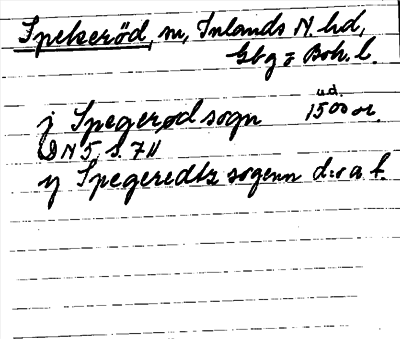 Spekeröd, sn, Inlands N. hd,
Gbg o Boh. l.
j Spegerød sogn u.d. 1500 or.
DN 5, s. 711
y Spegeredtz sogenn d:o a. st.